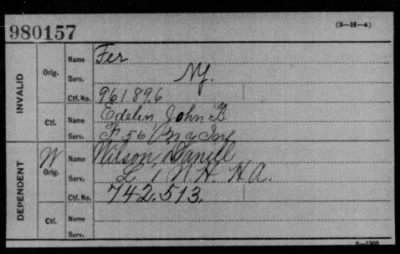 980157
(3-H-4)
INVALID
Orig.
Name Fer
Serv. Ny.
Ctf. No. 961896
Ctf.
Name Edelin John B.
Serv. F, 56
DEPENDENT
W
Orig.
Name Wilson, Daniel
Serv. L 1 N.H. H.A.
Ctf. No. 742.513.
Ctf.
Name
Serv.